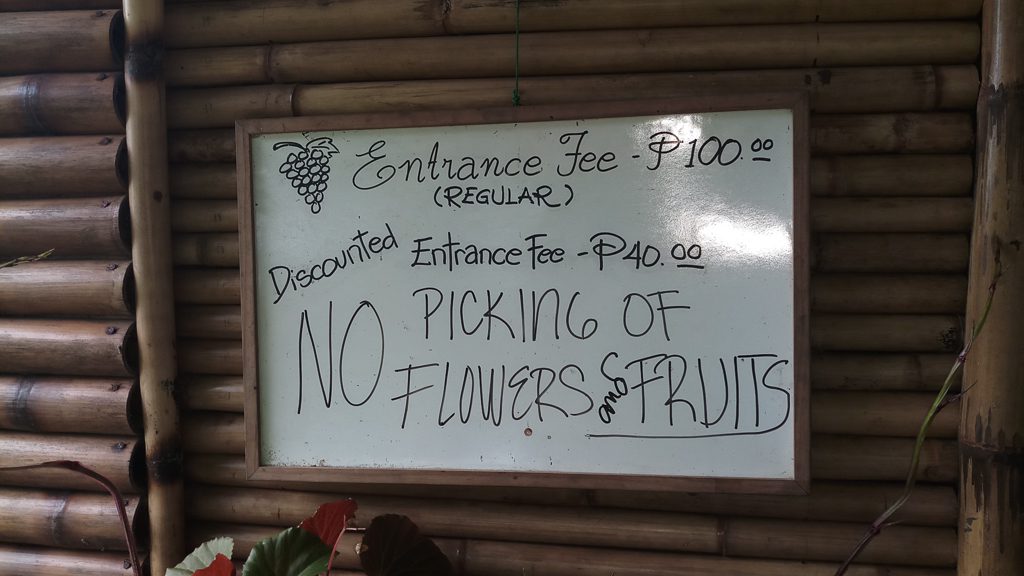 Entrance Fee - ₱100.00
(REGULAR)
Discounted Entrance Fee - ₱40.00
NO PICKING OF
FLOWERS & FRUITS